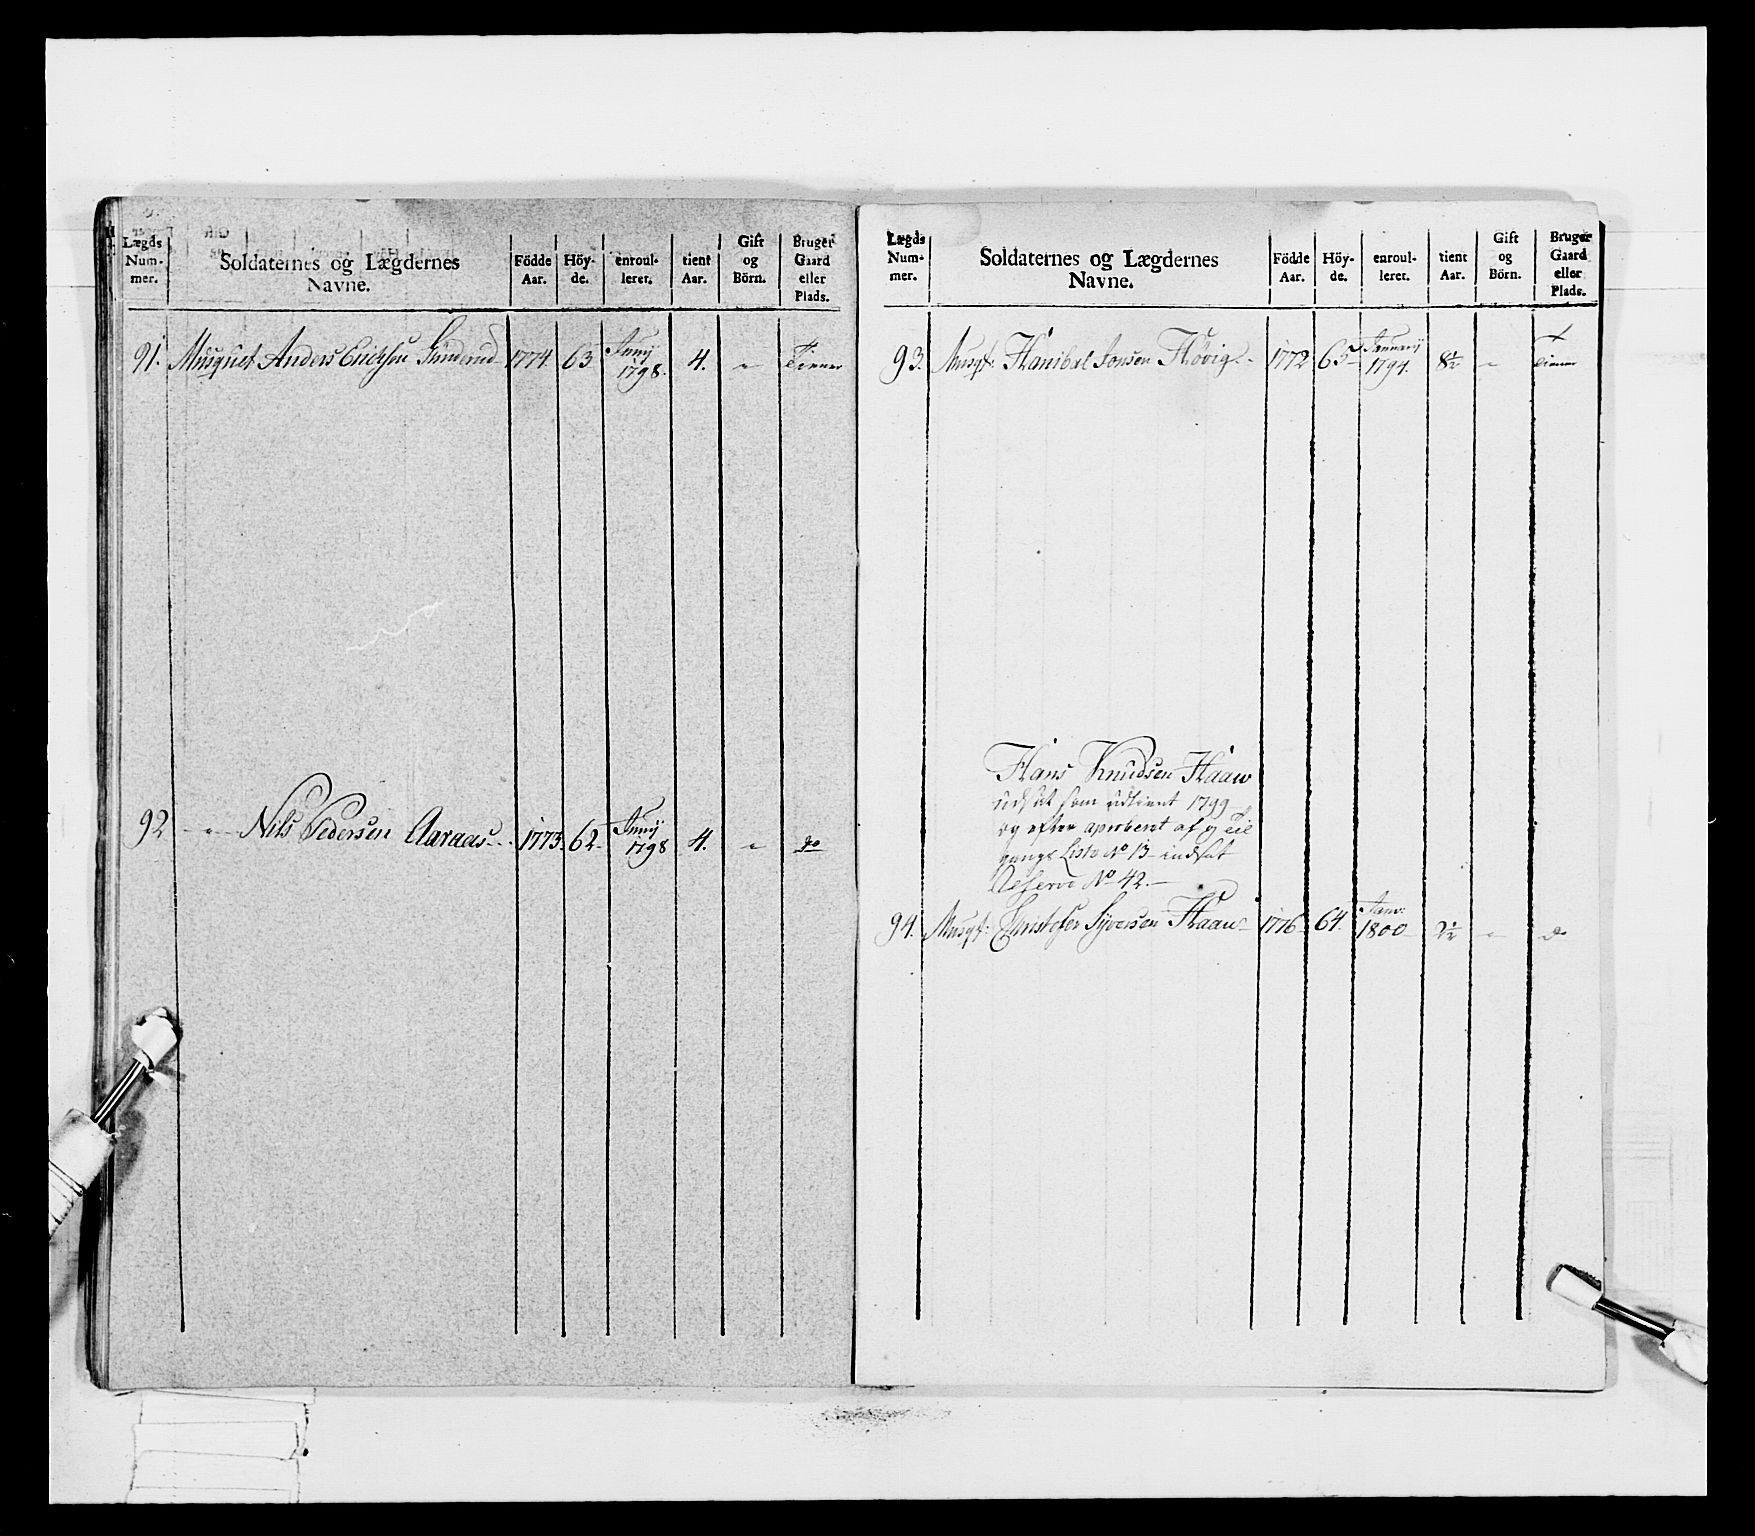 Lægds Num- mer. Soldaternes og Lægdernes Navne. Födde Aar. Höy- de. enroul- leret. tient Aar. Gift og Börn. Bruger Gaard eller Plads.
91. Musquet Anders Erichsen 1774. 63 Junij 1798. 4. " Tiener
92 " Nils Pedersen Aaraas 1773. 62. Junij 1798 4. " do
Lægds Num- mer. Soldaternes og Lægdernes Navne. Födde Aar. Höy- de. enroul- leret. tient Aar. Gift og Börn. Bruger Gaard eller Plads.
93. Musqt: Hanibal Jonsen Høvig 1772 65 Januarij 1794. 8½ " Tiener
Hans Knudsen Haaw
udsat som udtient 1799
og efter aproberet af
gangs Liste No 13 indsat
Reserve No 42.
94. Musqt: Christofer Syversen Haaw 1776 64. Janv: 1800 2½ " do